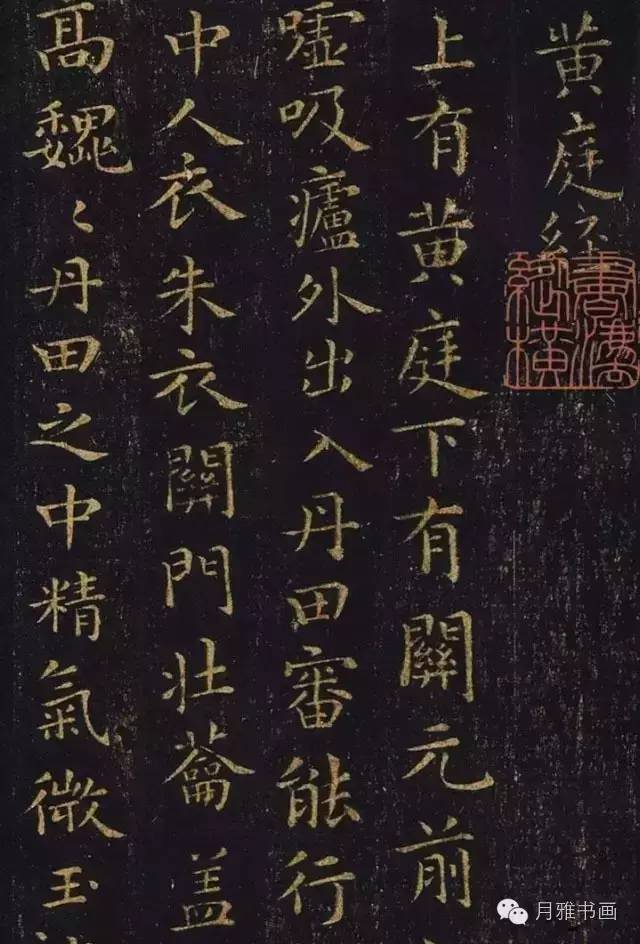 黄庭經
上有黄庭下有關元前
噓吸廬外出入丹田審能行
中人衣朱衣關門壯蘥盖
髙巍〻丹田之中精氣微玉
月雅书画